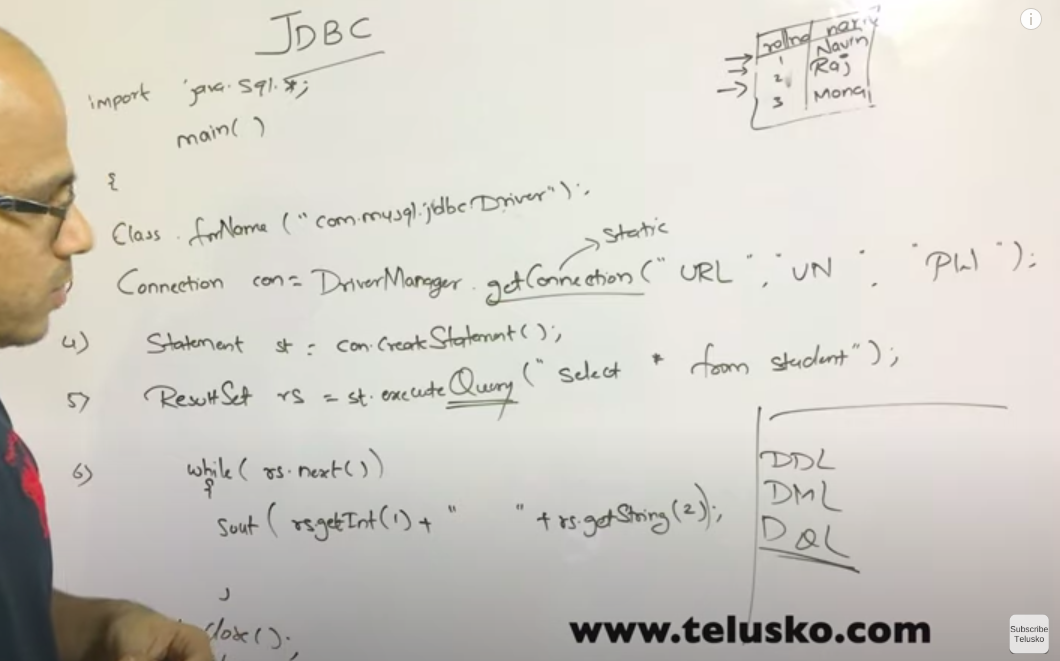 JDBC
import java.sql.*;
main( )
{
Class.forName("com.mysql.jdbc.Driver");
Static
Connection con = DriverManager.getConnection("URL", "UN", "PW");
4) Statement st = con.CreateStatement();
5) ResultSet rs = st.executeQuery("select * from student");
6) while(rs.next())
{
Sout(rs.getInt(1)+" "+rs.getString(2));
}
close();
rollno
1 Navin
2 Raj
3
DDL
DML
DQL
www.telusko.com
Subscribe
Telusko
i